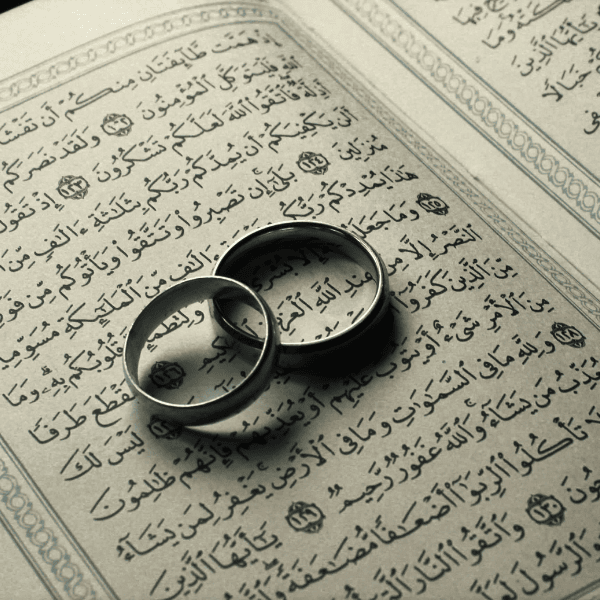 إِذْ هَمَّت طَّآئِفَتَانِ مِنكُمْ أَن تَفْشَلَا
ٱللَّهِ فَلْيَتَوَكَّلِ ٱلْمُؤْمِنُونَ ١٢٢ وَلَقَدْ نَصَرَكُمُ
أَذِلَّةٌ فَٱتَّقُوا۟ ٱللَّهَ لَعَلَّكُمْ تَشْكُرُونَ ١٢٣ إِذْ تَقُولُ
أَلَن يَكْفِيَكُمْ أَن يُمِدَّكُمْ رَبُّكُم بِثَلَٰثَةِ ءَالَٰفٍ مِّنَ
مُنزَلِينَ ١٢٤ بَلَىٰٓ إِن تَصْبِرُوا۟ وَتَتَّقُوا۟ وَيَأْتُوكُم مِّن فَوْرِ
هَٰذَا يُمْدِدْكُمْ رَبُّكُم ءَالَٰفٍ مِّنَ ٱلْمَلَٰٓئِكَةِ
١٢٥ وَمَا جَعَلَهُ إِلَّا بُشْرَىٰ وَلِتَطْمَئِنَّ قُلُوبُكُم بِهِۦ وَمَا
ٱلنَّصْرُ إِلَّا مِنْ عِندِ ٱللَّهِ ٱلْعَزِيزِ ١٢٦ لِيَقْطَعَ طَرَفًا
مِّنَ ٱلَّذِينَ كَفَرُوٓا۟ لَيْسَ لَكَ
مِنَ ٱلْأَمْرِ شَىْءٌ أَوْ يَتُوبَ عَلَيْهِمْ أَوْ يُعَذِّبَهُمْ فَإِنَّهُمْ ظَٰلِمُونَ
١٢٨ وَلِلَّهِ مَا فِى ٱلسَّمَٰوَٰتِ وَمَا فِى ٱلْأَرْضِ يَغْفِرُ لِمَن يَشَآءُ
وَيُعَذِّبُ مَن يَشَآءُ وَٱللَّهُ غَفُورٌ رَّحِيمٌ ١٢٩ يَٰٓأَيُّهَا ٱلَّذِينَ
لَا تَأْكُلُوا۟ ٱلرِّبَوٰٓا۟ أَضْعَٰفًا مُّضَٰعَفَةً
١٣٠ وَٱتَّقُوا۟ ٱلنَّارَ ٱلَّتِىٓ
وَٱلرَّسُولَ